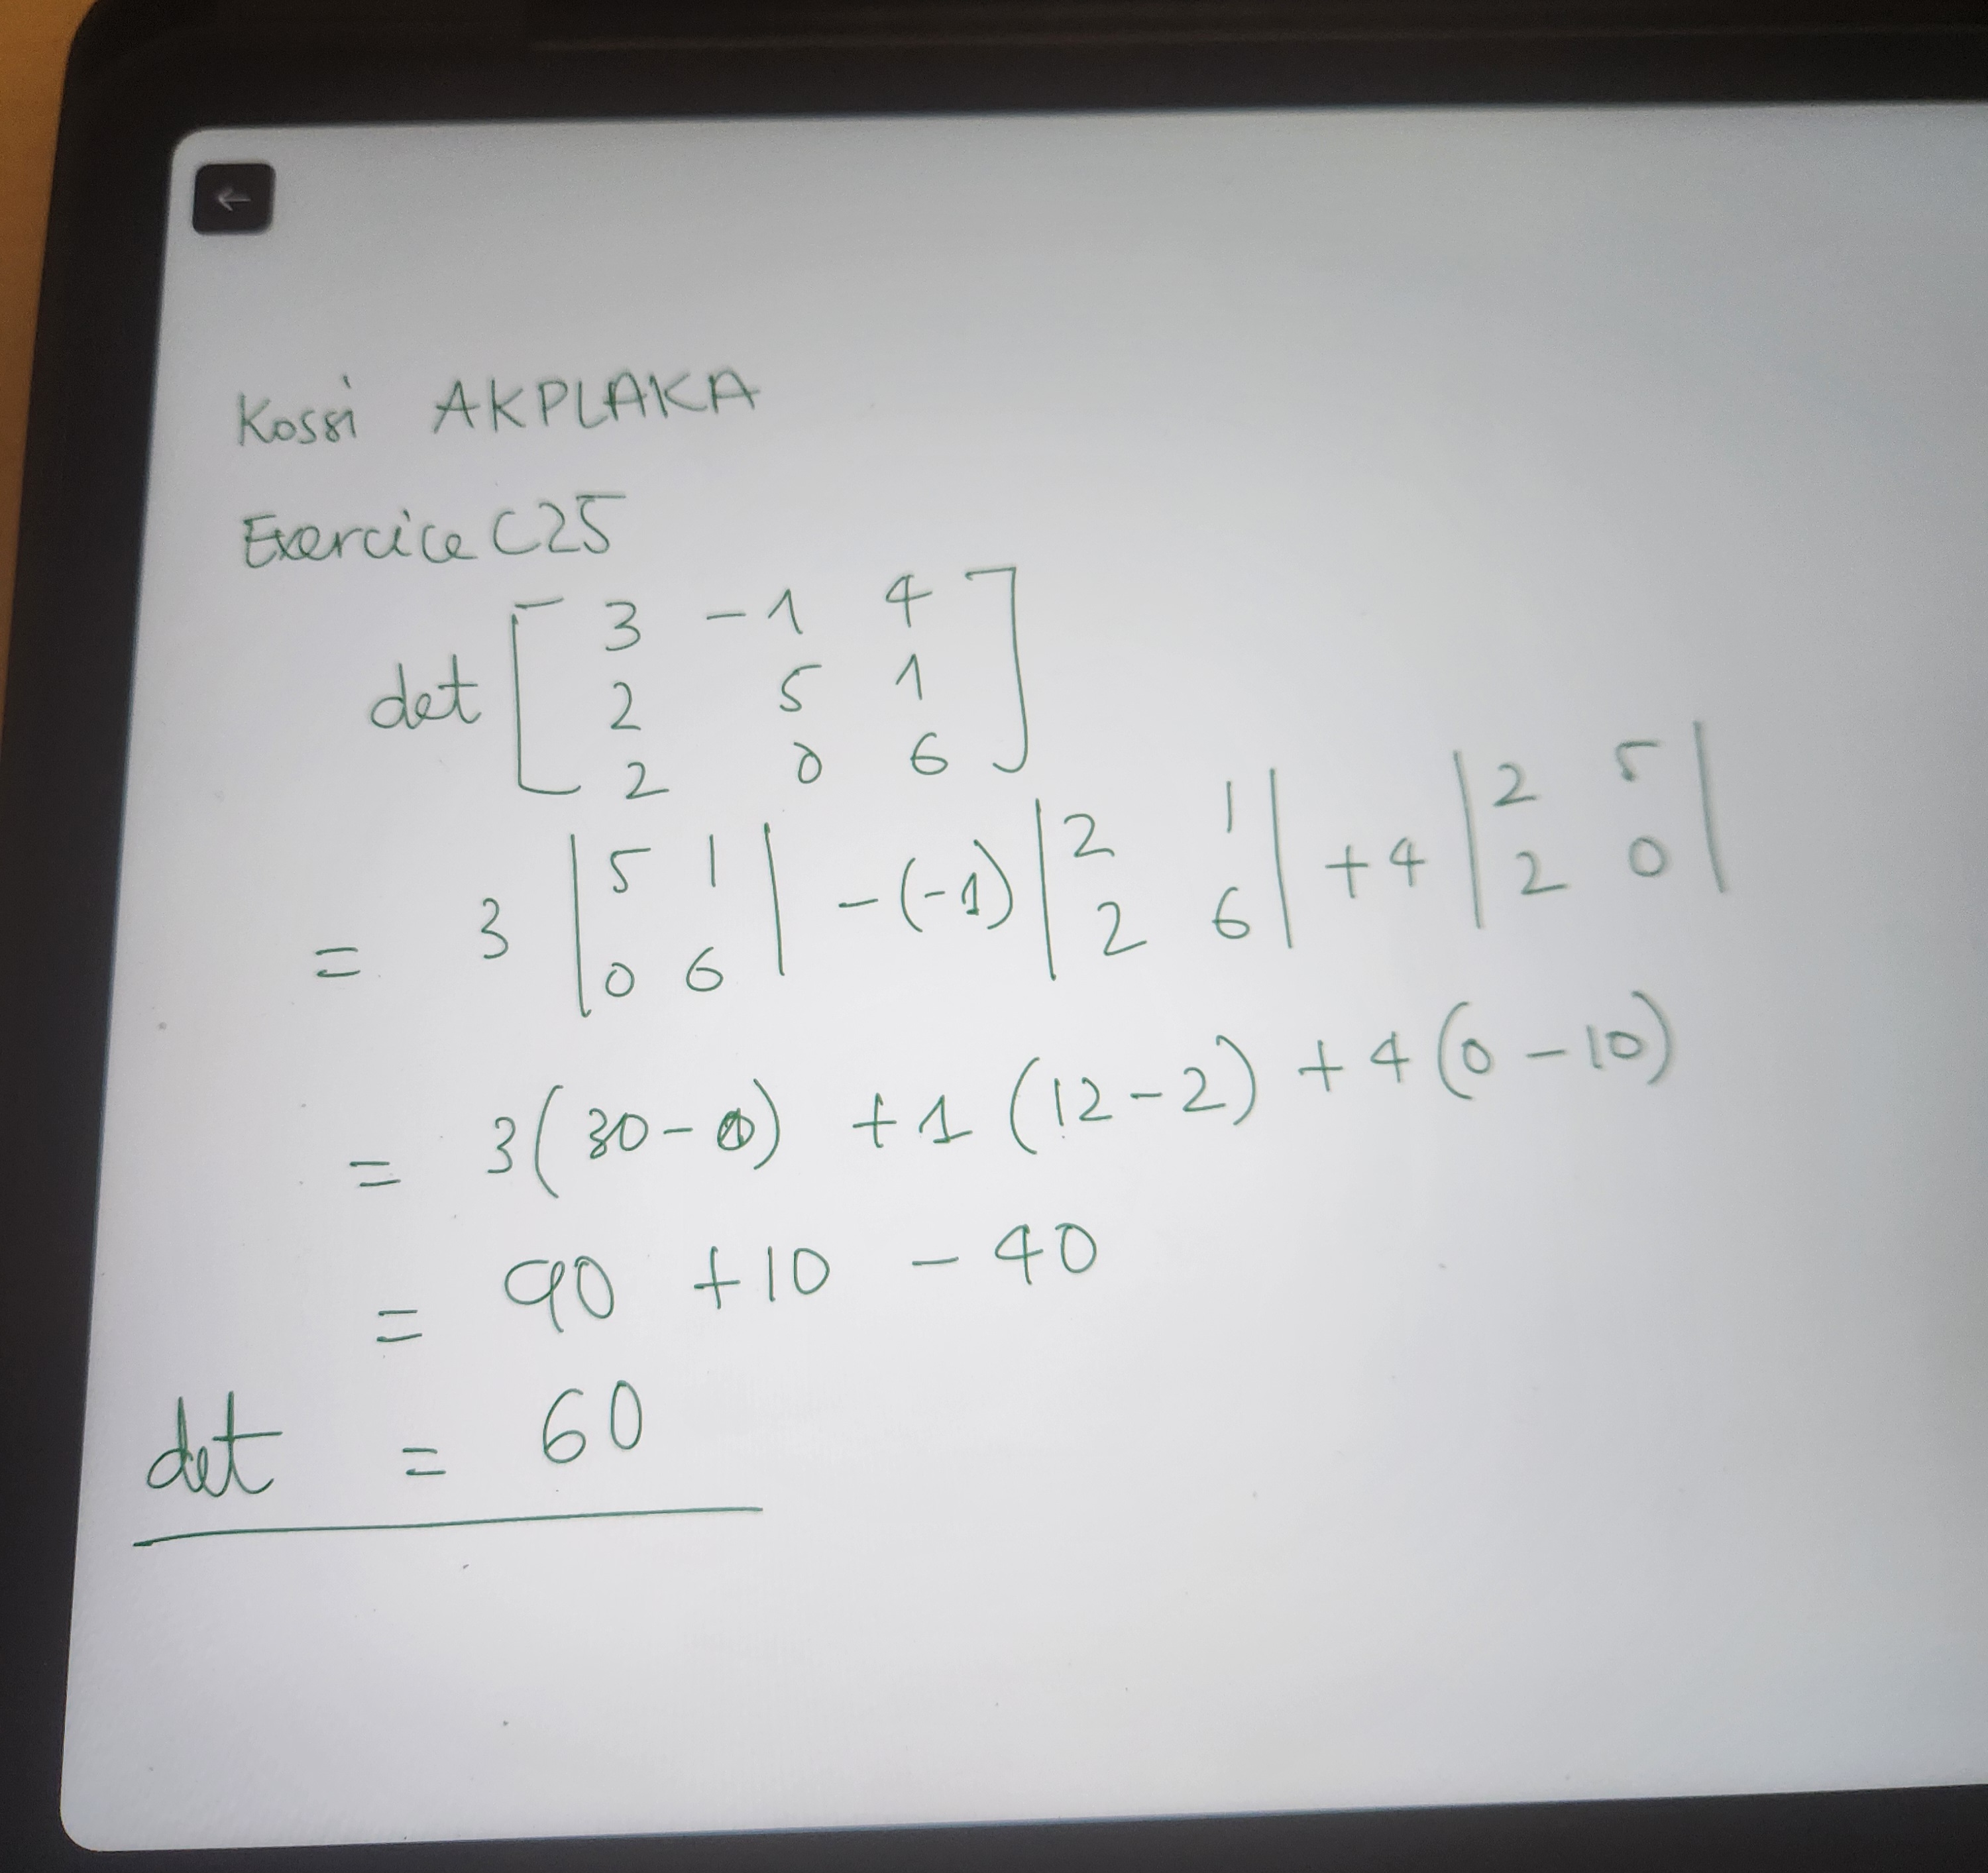 Kossi AKPLAKA
Exercice C25
det [ 3 -1 4
2 5 1
2 0 6 ]
= 3 | 5 1
0 6 | -(-1) | 2 1
2 6 | +4 | 2 5
2 0 |
= 3(30-0) +1 (12-2) +4(0-10)
= 90 +10 -40
det = 60